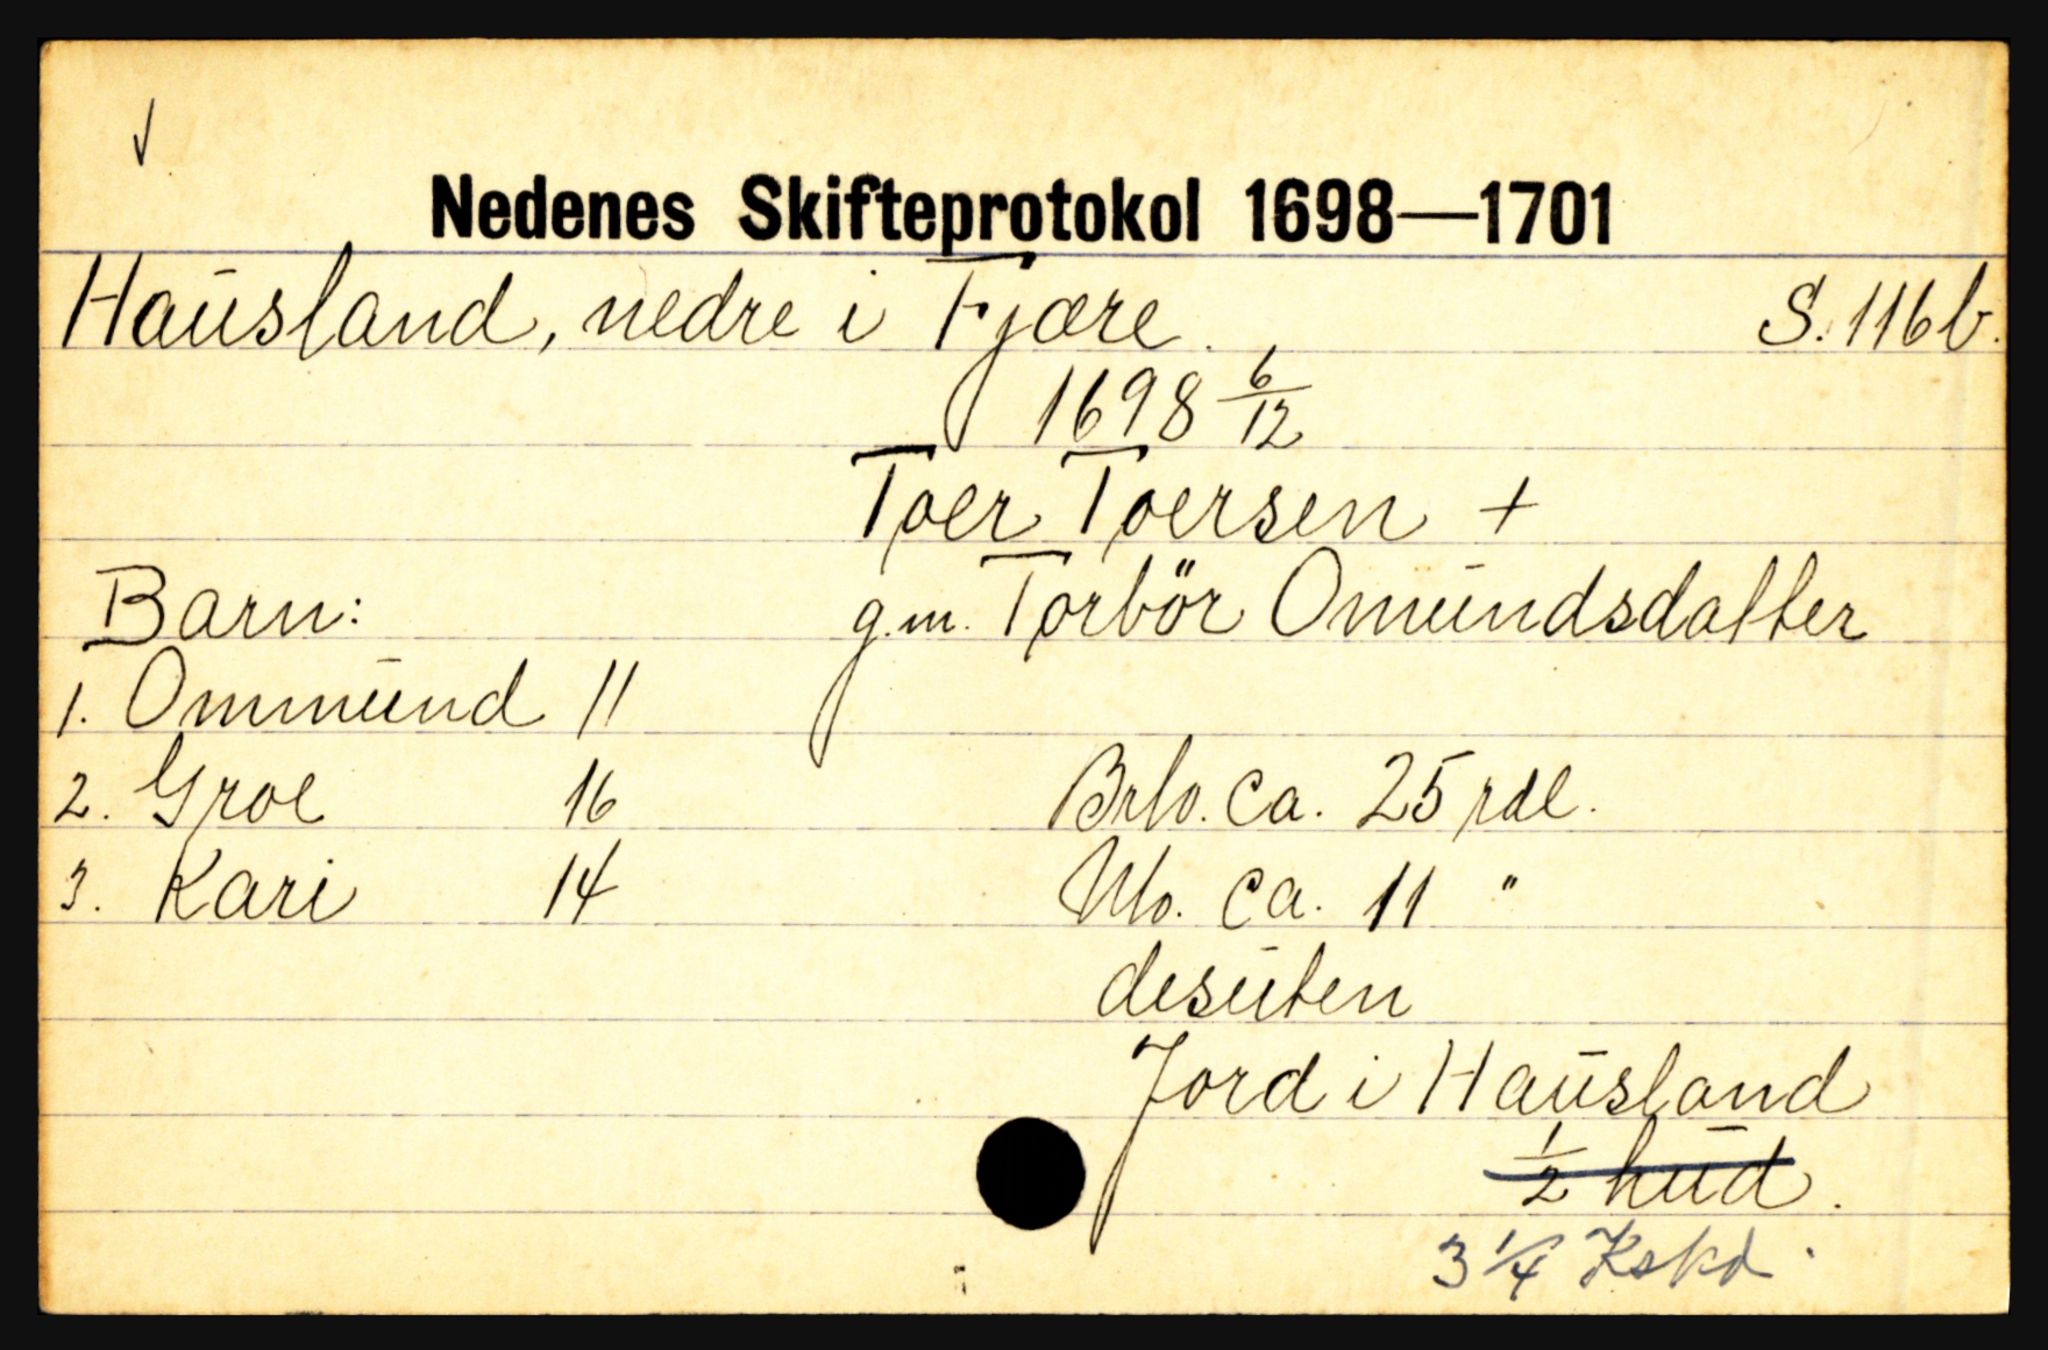 Nedenes Skifteprotokol 1698—1701
Hausland, nedre i Fjære. S. 116b.
1698 6/12
Toer Toersen +
Barn: g.m. Torbör Omundsdatter
1. Ommund 11
2. Groe 16 Brlo. ca. 25 rdl.
3. Kari 14 Nlo. ca. 11 "
desuten
Jord i Hausland
1/2 hud.
3 1/4 Kskd.